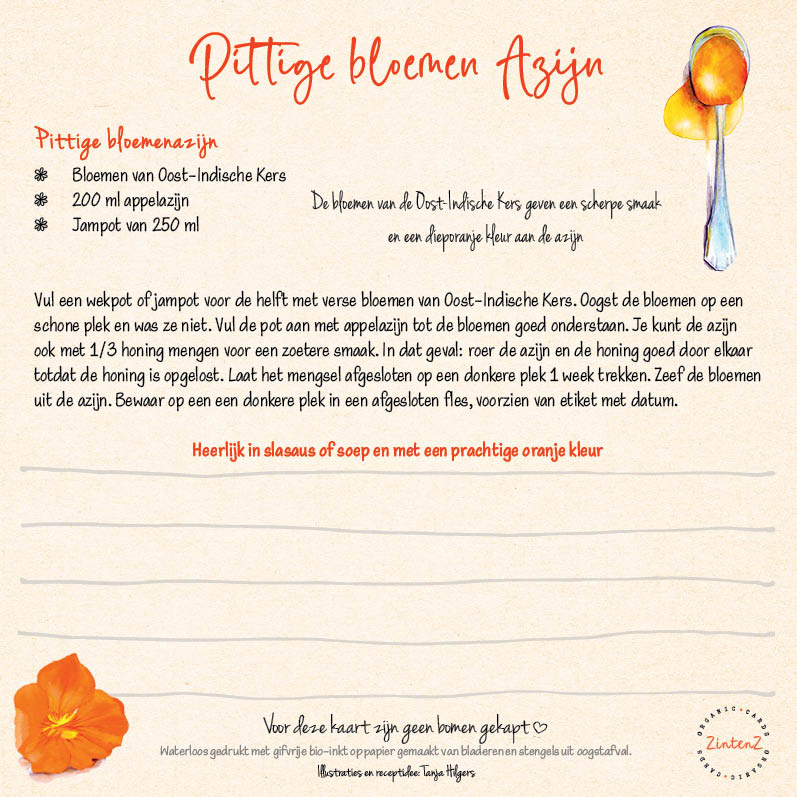 Pittige bloemen Azijn
Pittige bloemenazijn
Bloemen van Oost-Indische Kers
200 ml appelazijn
Jampot van 250 ml
De bloemen van de Oost-Indische Kers geven een scherpe smaak
en een dieporanje kleur aan de azijn
Vul een wekpot of jampot voor de helft met verse bloemen van Oost-Indische Kers. Oogst de bloemen op een
schone plek en was ze niet. Vul de pot aan met appelazijn tot de bloemen goed onderstaan. Je kunt de azijn
ook met 1/3 honing mengen voor een zoetere smaak. In dat geval: roer de azijn en de honing goed door elkaar
totdat de honing is opgelost. Laat het mengsel afgesloten op een donkere plek 1 week trekken. Zeef de bloemen
uit de azijn. Bewaar op een een donkere plek in een afgesloten fles, voorzien van etiket met datum.
Heerlijk in slasaus of soep en met een prachtige oranje kleur
Voor deze kaart zijn geen bomen gekapt
Waterloos gedrukt met gifvrije bio-inkt op papier gemaakt van bladeren en stengels uit oogstafval.
Illustraties en receptidee: Tanja Hilgers
ORGANIC • CARDS • ORGANIC • CARDS •
ZintenZ